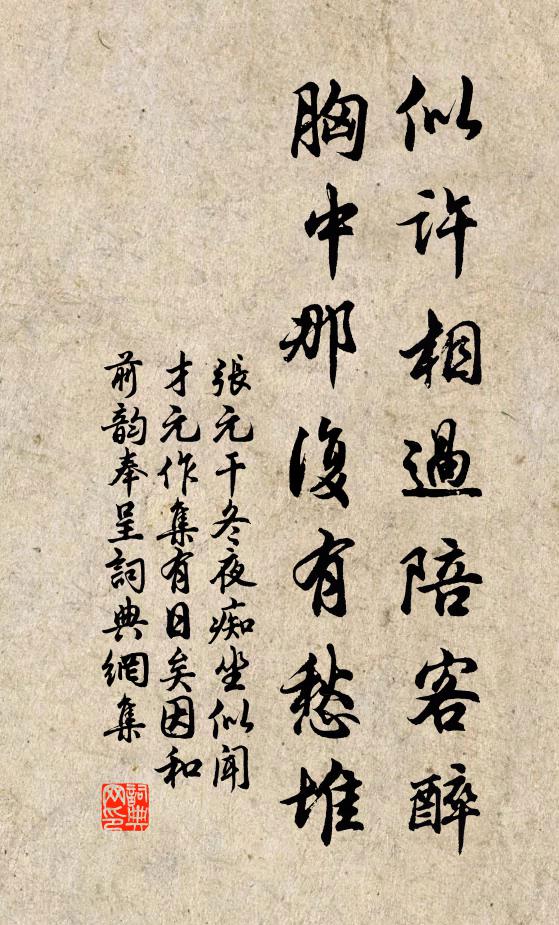 似许相過陪客醉
胸中那復有愁堆
張元干冬夜痴坐似闻
才元作集有日矣因和
前韵奉呈詞典網集
詞典网印